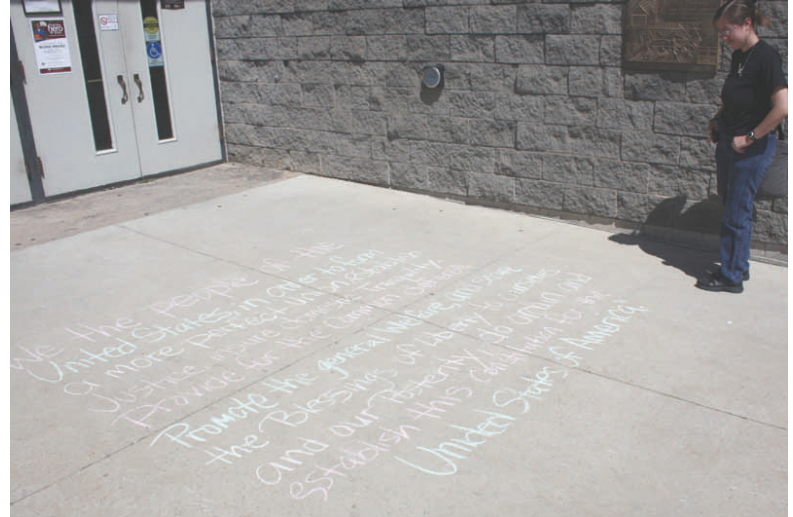 We the people in the
United States, in order to form
a more perfect Union, establish
Justice, insure domestic Tranquility
Provide for the common defence
Promote the general Welfare and secure
the Blessings of Liberty to ourselves
and our Posterity, do ordain and
establish this constitution for the
United States of America.